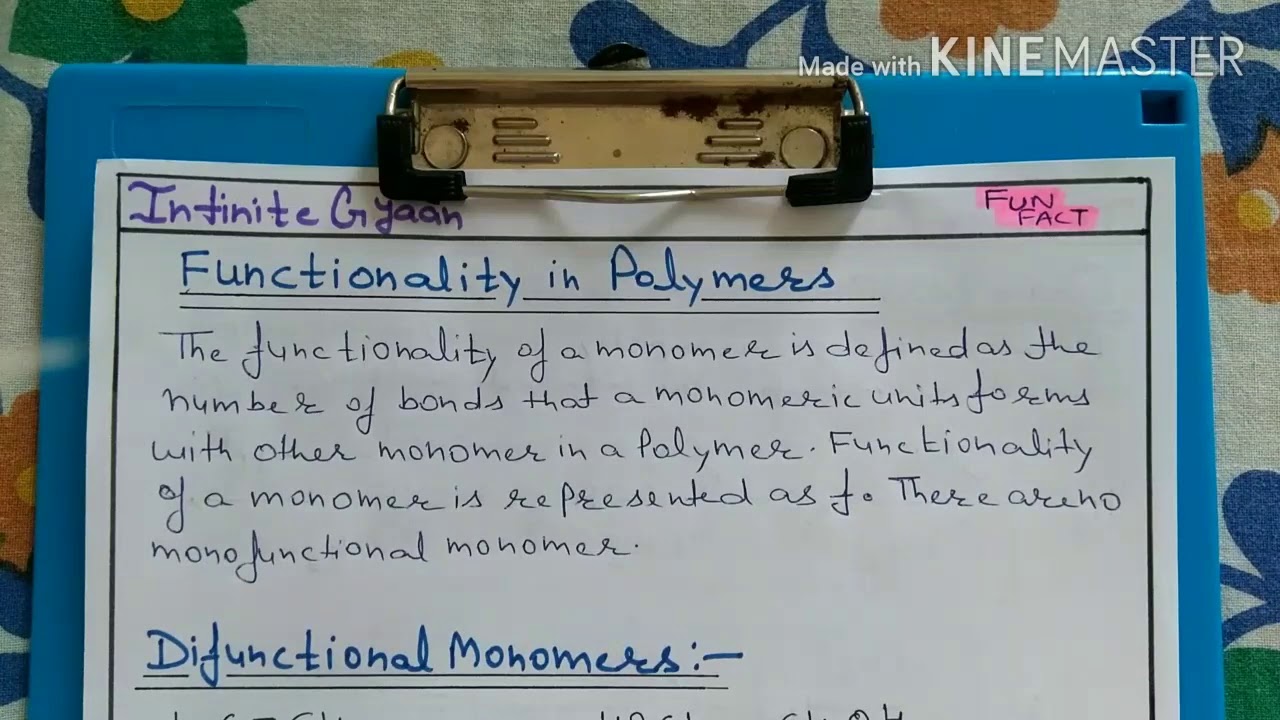 Made with KINEMASTER
Infinite Gyaan
FUN
FACT
Functionality in Polymers
The functionality of a monomer is defined as the
number of bonds that a monomeric units forms
with other monomer in a Polymer. Functionality
of a monomer is represented as f. There are no
monofunctional monomer.
Difunctional Monomers:-